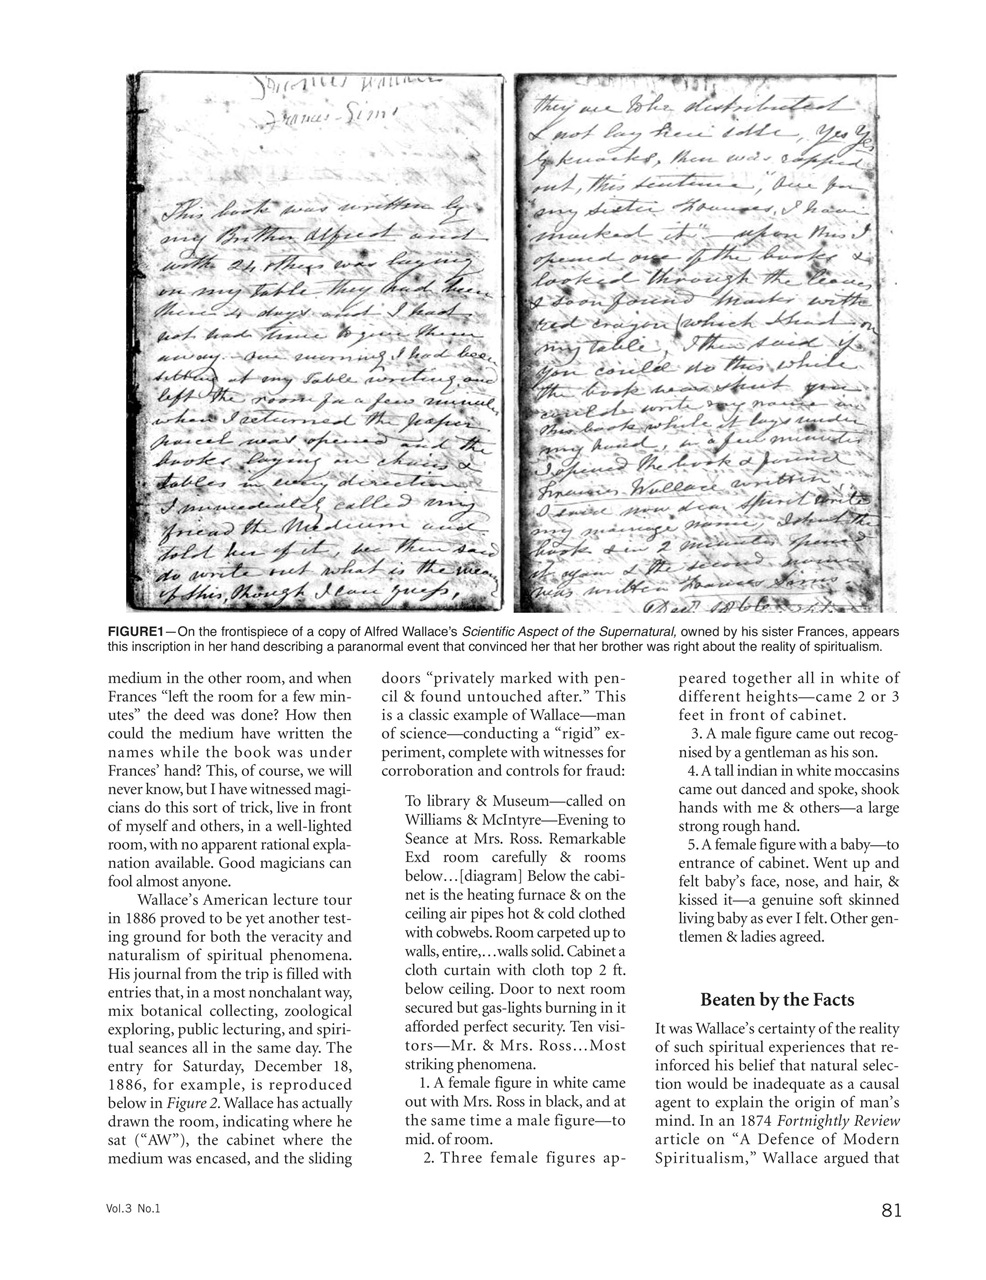 Frances Wallace
Frances Sims
This book was written by
my Brother Alfred and
with 24 others was laying
on my table. they had been
there 4 days and I had
not had time to give them
away. one morning I had been
sitting at my Table writing and
left the room for a few minutes
when I returned the paper
parcel was opened and the
books laying on chairs &
tables in every direction
I immediately called my
friend the Medium and
told her of it, then said
do write out what is the mean
of this, though I can guess,
they are to be distributed
& not lay here idle, Yes Yes
by knocks, then was rapped
out, this sentence, "One for
my sister Frances, I have
marked it" upon this I
opened one of the books &
looked through the leaves
& soon found marks with
red crayon (which I had on
my table, I then said if
you could do this while
the book was shut you
could write my name in
this book while it lays under
my hand, in a few minutes
I opened the book & found
Frances Wallace written,
I said now dear spirit write
my marriage name, I shut the
book & in 2 minutes opened
it again & the second name
was written Frances Sims
FIGURE1—On the frontispiece of a copy of Alfred Wallace's Scientific Aspect of the Supernatural, owned by his sister Frances, appears
this inscription in her hand describing a paranormal event that convinced her that her brother was right about the reality of spiritualism.
medium in the other room, and when
Frances “left the room for a few min-
utes” the deed was done? How then
could the medium have written the
names while the book was under
Frances’ hand? This, of course, we will
never know, but I have witnessed magi-
cians do this sort of trick, live in front
of myself and others, in a well-lighted
room, with no apparent rational expla-
nation available. Good magicians can
fool almost anyone.
Wallace’s American lecture tour
in 1886 proved to be yet another test-
ing ground for both the veracity and
naturalism of spiritual phenomena.
His journal from the trip is filled with
entries that, in a most nonchalant way,
mix botanical collecting, zoological
exploring, public lecturing, and spiri-
tual seances all in the same day. The
entry for Saturday, December 18,
1886, for example, is reproduced
below in Figure 2. Wallace has actually
drawn the room, indicating where he
sat (“AW”), the cabinet where the
medium was encased, and the sliding
doors “privately marked with pen-
cil & found untouched after.” This
is a classic example of Wallace—man
of science—conducting a “rigid” ex-
periment, complete with witnesses for
corroboration and controls for fraud:
To library & Museum—called on
Williams & McIntyre—Evening to
Seance at Mrs. Ross. Remarkable
Exd room carefully & rooms
below…[diagram] Below the cabi-
net is the heating furnace & on the
ceiling air pipes hot & cold clothed
with cobwebs. Room carpeted up to
walls, entire,…walls solid. Cabinet a
cloth curtain with cloth top 2 ft.
below ceiling. Door to next room
secured but gas-lights burning in it
afforded perfect security. Ten visi-
tors—Mr. & Mrs. Ross…Most
striking phenomena.
1. A female figure in white came
out with Mrs. Ross in black, and at
the same time a male figure—to
mid. of room.
2. Three female figures ap-
peared together all in white of
different heights—came 2 or 3
feet in front of cabinet.
3. A male figure came out recog-
nised by a gentleman as his son.
4. A tall indian in white moccasins
came out danced and spoke, shook
hands with me & others—a large
strong rough hand.
5. A female figure with a baby—to
entrance of cabinet. Went up and
felt baby’s face, nose, and hair, &
kissed it—a genuine soft skinned
living baby as ever I felt. Other gen-
tlemen & ladies agreed.
Beaten by the Facts
It was Wallace’s certainty of the reality
of such spiritual experiences that re-
inforced his belief that natural selec-
tion would be inadequate as a causal
agent to explain the origin of man’s
mind. In an 1874 Fortnightly Review
article on “A Defence of Modern
Spiritualism,” Wallace argued that
Vol.3 No.1
81